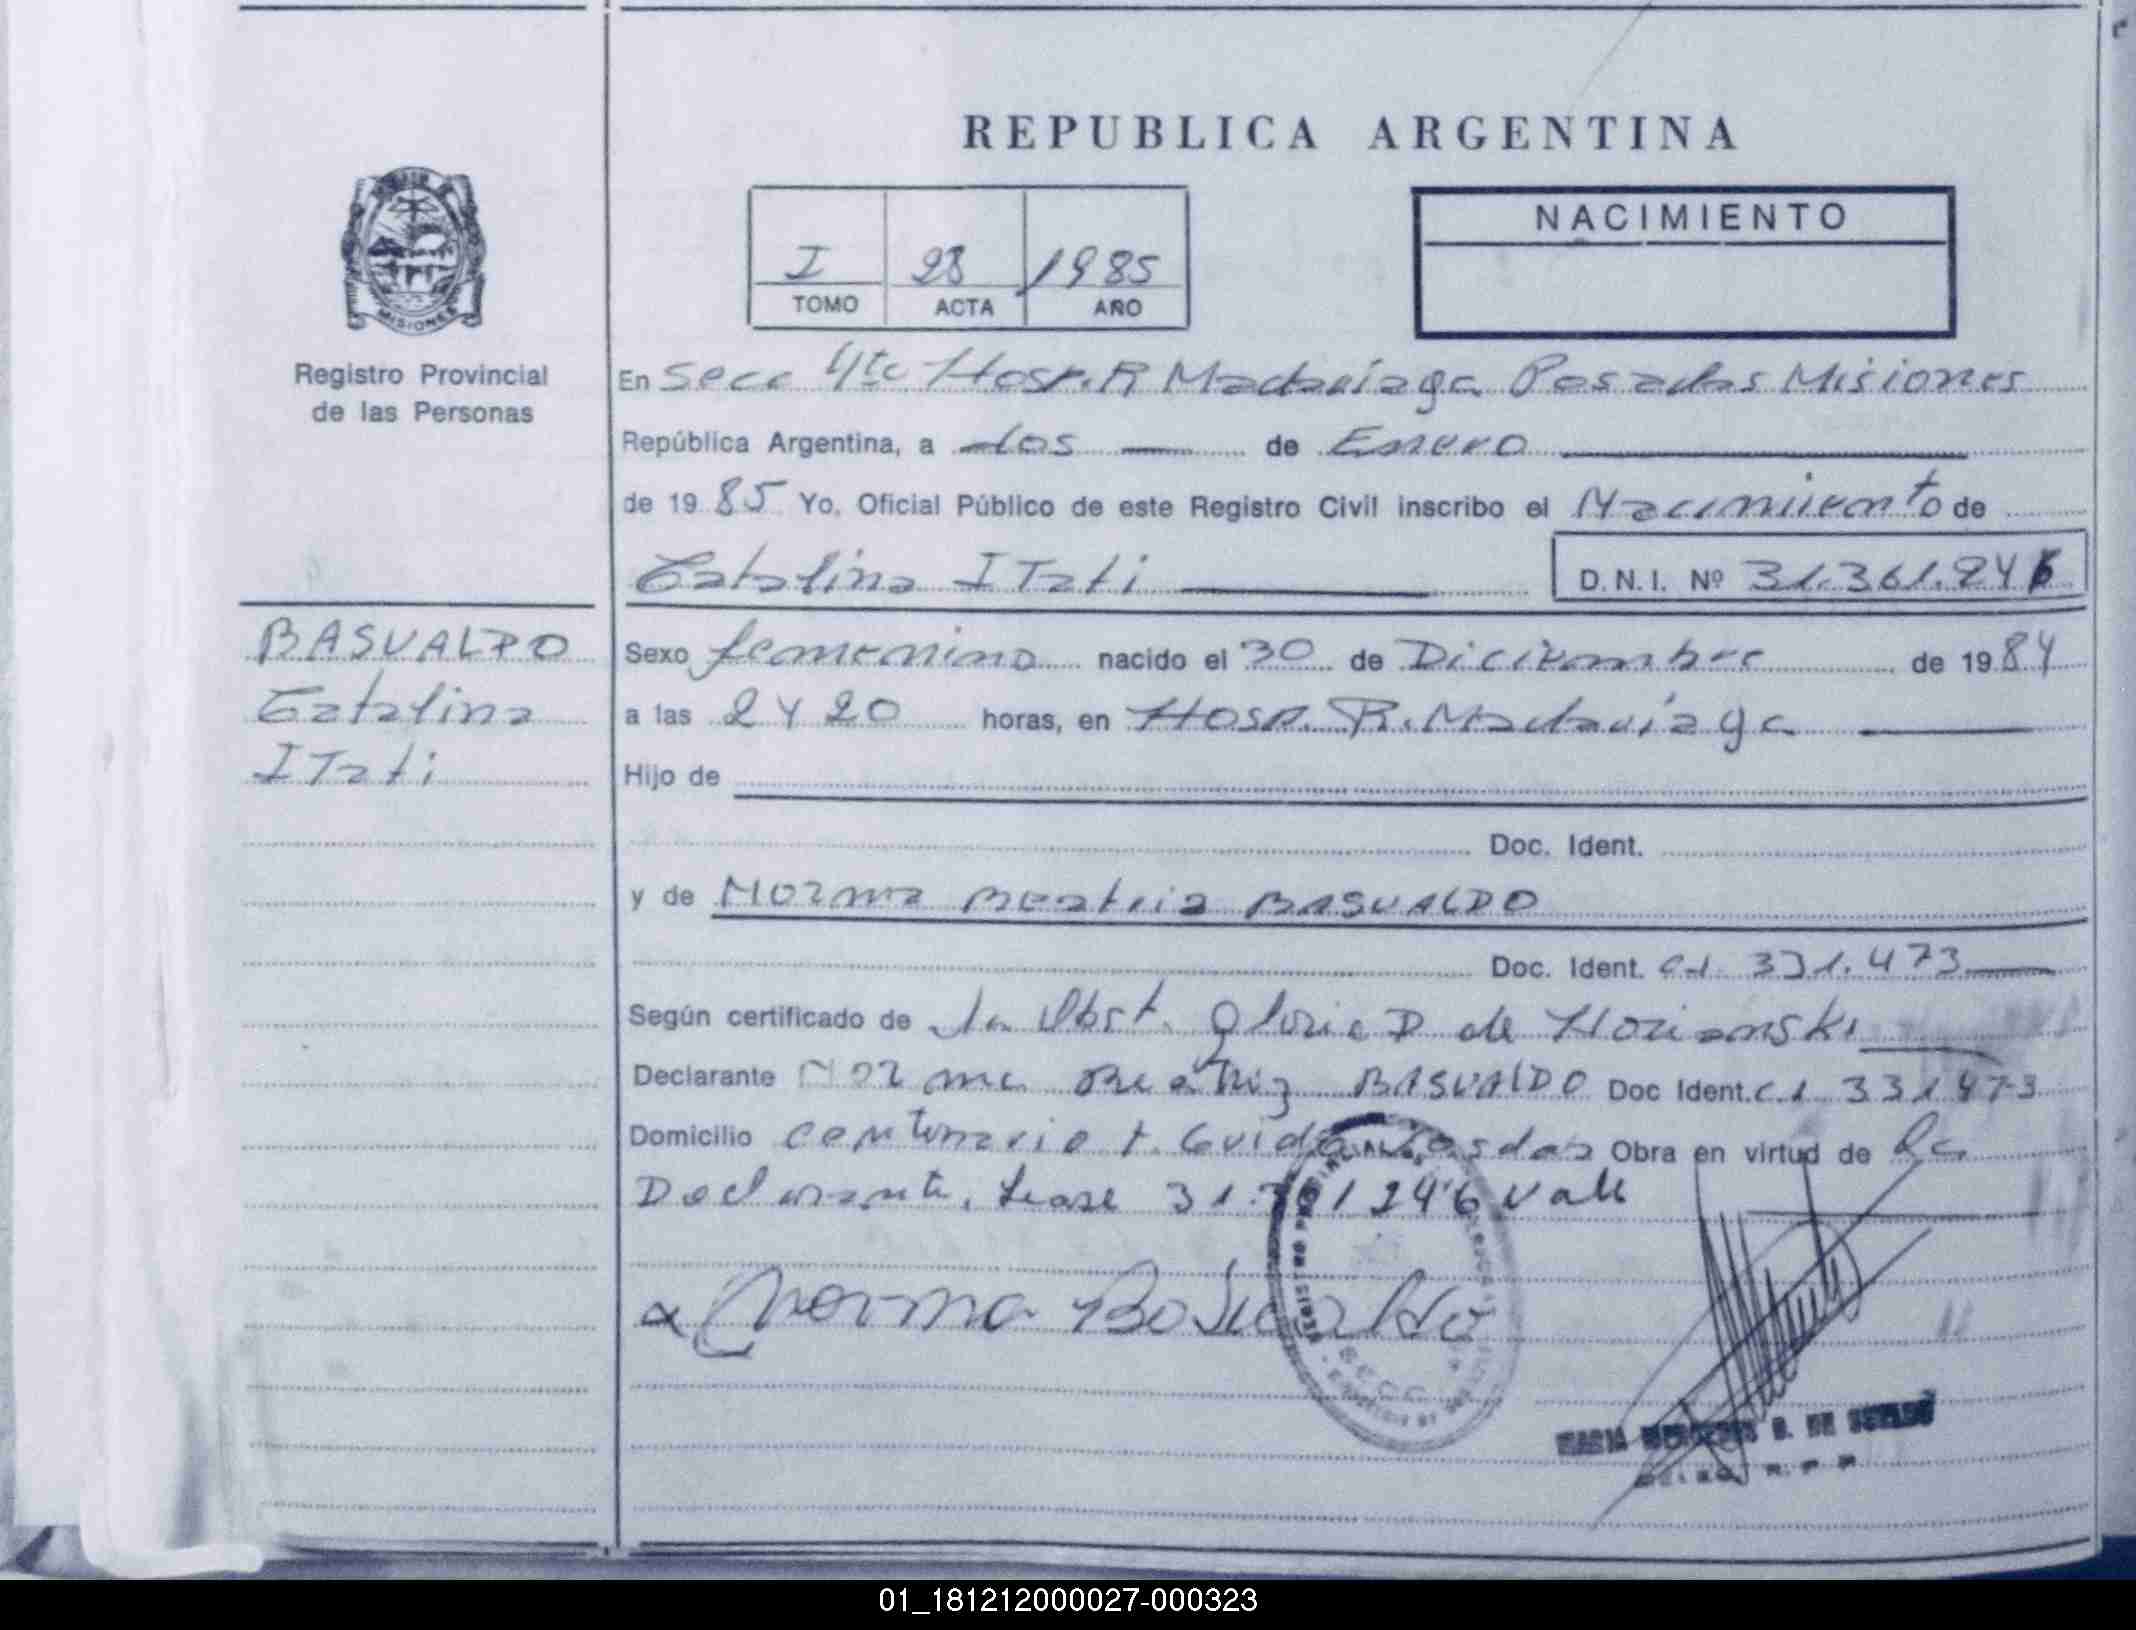 REPUBLICA ARGENTINA
MISIONES
Registro Provincial
de las Personas
I 28 1985
TOMO ACTA AÑO
NACIMIENTO
En Secc 4ta Hosp. R Madariaga Posadas Misiones
República Argentina, a dos de Enero
de 1985 Yo, Oficial Público de este Registro Civil inscribo el Nacimiento de
Catalina ITati D.N.I. Nº 31.361.246
BASUALDO
Catalina
ITati
Sexo femenino nacido el 30 de Diciembre de 1984
a las 2 y 20 horas, en Hosp. R. Madariaga
Hijo de
Doc. Ident.
y de Norma Beatriz BASUALDO
Doc. Ident. C.I. 331.473
Según certificado de la Obst. Gloria D de
Declarante Norma Beatriz BASUALDO Doc Ident. C.I 331473
Domicilio centenario t. Obra en virtud de la
Declarante, Lease 31.361246 Vale
Norma Basualdo
REGISTRO PROVINCIAL
S. DE
01_181212000027-000323